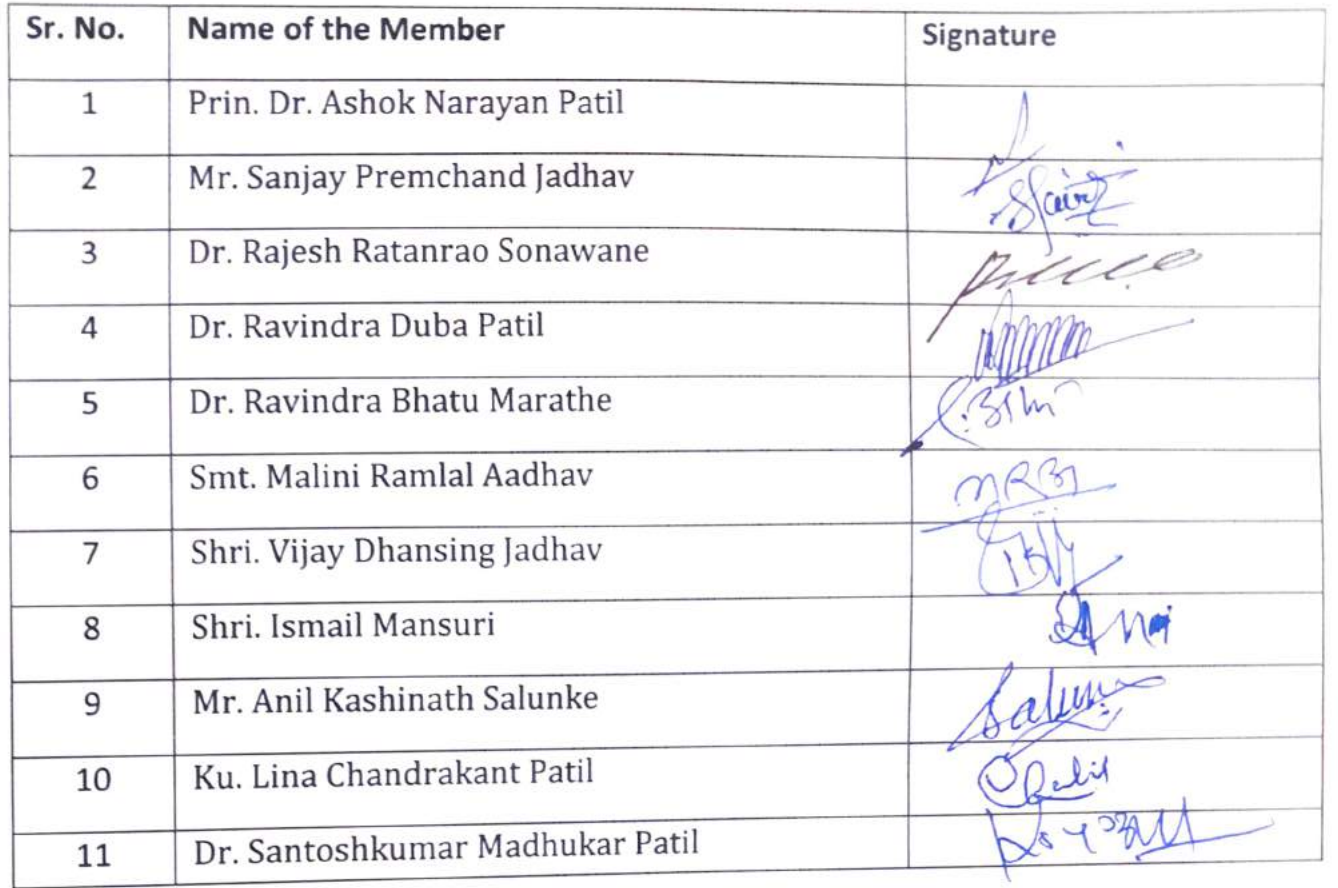 Sr. No. Name of the Member Signature
1 Prin. Dr. Ashok Narayan Patil
2 Mr. Sanjay Premchand Jadhav
3 Dr. Rajesh Ratanrao Sonawane
4 Dr. Ravindra Duba Patil
5 Dr. Ravindra Bhatu Marathe
6 Smt. Malini Ramlal Aadhav
7 Shri. Vijay Dhansing Jadhav
8 Shri. Ismail Mansuri
9 Mr. Anil Kashinath Salunke
10 Ku. Lina Chandrakant Patil
11 Dr. Santoshkumar Madhukar Patil